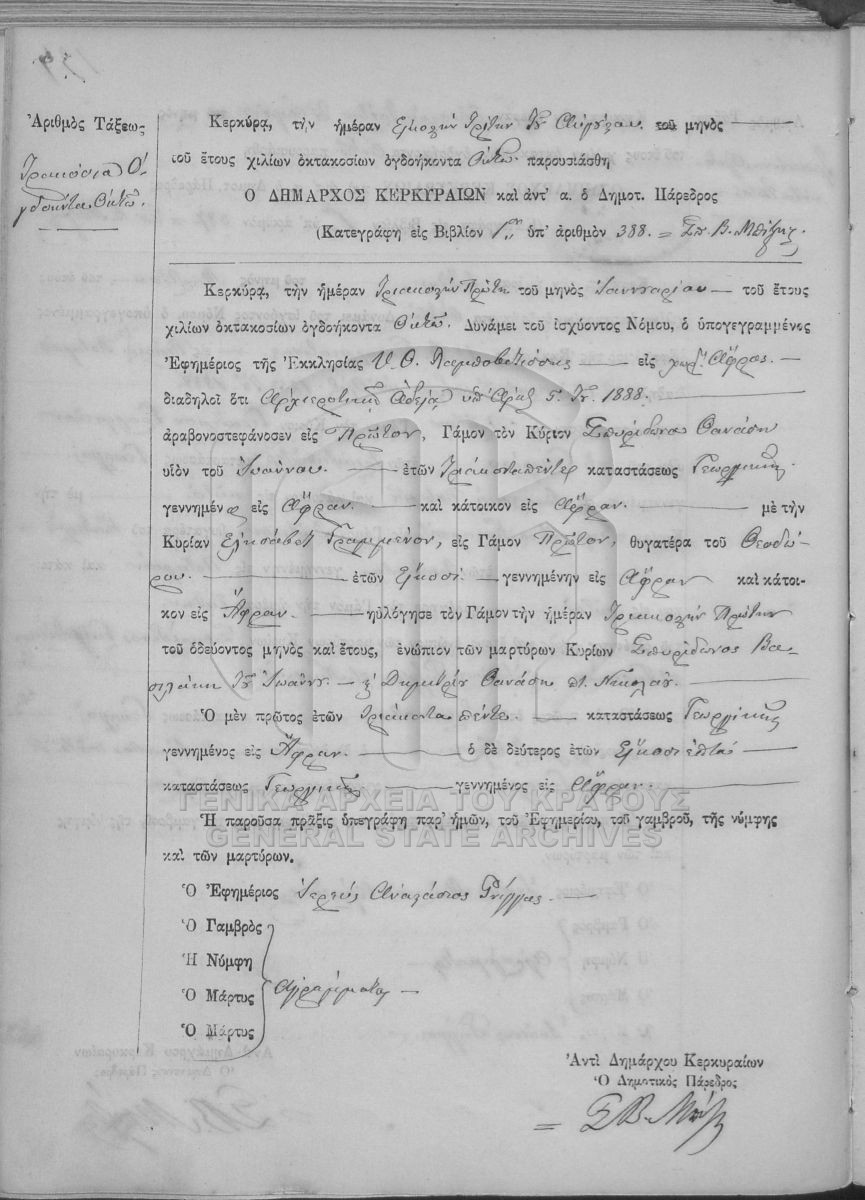 Ἀριθμὸς Τάξεως
Τριακόσια Ὀ-
γδοῆντα Ὀκτὼ.
Κερκύρᾳ, τὴν ἡμέραν Εἰκοστὴν Τρίτην Αὐγούστου τοῦ μηνὸς
τοῦ ἔτους χιλίων ὀκτακοσίων ὀγδοήκοντα Ὀκτὼ παρουσιάσθη
Ὁ ΔΗΜΑΡΧΟΣ ΚΕΡΚΥΡΑΙΩΝ καὶ ἀντ' α. ὁ Δημοτ. Πάρεδρος
(Κατεγράφη εἰς Βιβλίον ὑπ' ἀριθμὸν 388. = Σπ. Β.
Κερκύρᾳ, τὴν ἡμέραν Τριακοστὴν Πρώτη τοῦ μηνὸς Ἰαννουαρίου τοῦ ἔτους
χιλίων ὀκτακοσίων ὀγδοήκοντα Ὀκτὼ. Δυνάμει τοῦ ἰσχύοντος Νόμου, ὁ ὑπογεγραμμένος
Ἐφημέριος τῆς Ἐκκλησίας Υ. Θ. Λαμποβετίσσης εἰς χωρ. Ἄφρας.
διαδηλοῖ ὅτι Ἀρχιερατικῇ Ἀδείᾳ ὑπ' Ἀριθ 5. 1888.
ἀραβονοστεφάνοσεν εἰς Πρῶτον, Γάμον τὸν Κύριον Σπυρίδωνα Θανάση
υἱὸν τοῦ Ἰωάννου. ἐτῶν Τριάκονταπέντε καταστάσεως Γεωργικῆς.
γεννημένο εἰς Ἄφραν. καὶ κάτοικον εἰς Ἄφραν. μὲ τὴν
Κυρίαν Ἐλησάβετ Γραμμένου, εἰς Γάμον Πρῶτον, θυγατέρα τοῦ Θεοδώ-
ρου. ἐτῶν Εἴκοσι. γεννημένην εἰς Ἄφραν καὶ κάτοι-
κον εἰς Ἄφραν. ηὐλόγησε τὸν Γάμον τὴν ἡμέραν Τριακοστὴν Πρώτην
τοῦ ὁδεύοντος μηνὸς καὶ ἔτους, ἐνώπιον τῶν μαρτύρων Κυρίων Σπυρίδωνος Βα-
σιλάκη Ἰωάννου. Δημητρίου Θανάση Νικολάου.
Ὁ μὲν πρῶτος ἐτῶν τριάκοντα πέντε. καταστάσεως Γεωργικῆς
γεννημένος εἰς Ἄφραν. ὁ δὲ δεύτερος ἐτῶν Εἴκοσι ἑπτὰ
καταστάσεως Γεωργικῆς γεννημένος εἰς Ἄφραν.
ΓΕΝΙΚΑ ΑΡΧΕΙΑ ΤΟΥ ΚΡΑΤΟΥΣ
GENERAL STATE ARCHIVES
Ἡ παροῦσα πρᾶξις ὑπεγράφη παρ' ἡμῶν, τοῦ Ἐφημερίου, τοῦ γαμβροῦ, τῆς νύμφης
καὶ τῶν μαρτύρων.
Ὁ Ἐφημέριος Ἱερεὺς Ἀναστάσιος
Ὁ Γαμβρὸς
Ἡ Νύμφη
Ὁ Μάρτυς Ἀγράμματοι
Ὁ Μάρτυς
Ἀντὶ Δημάρχου Κερκυραίων
Ὁ Δημοτικὸς Πάρεδρος